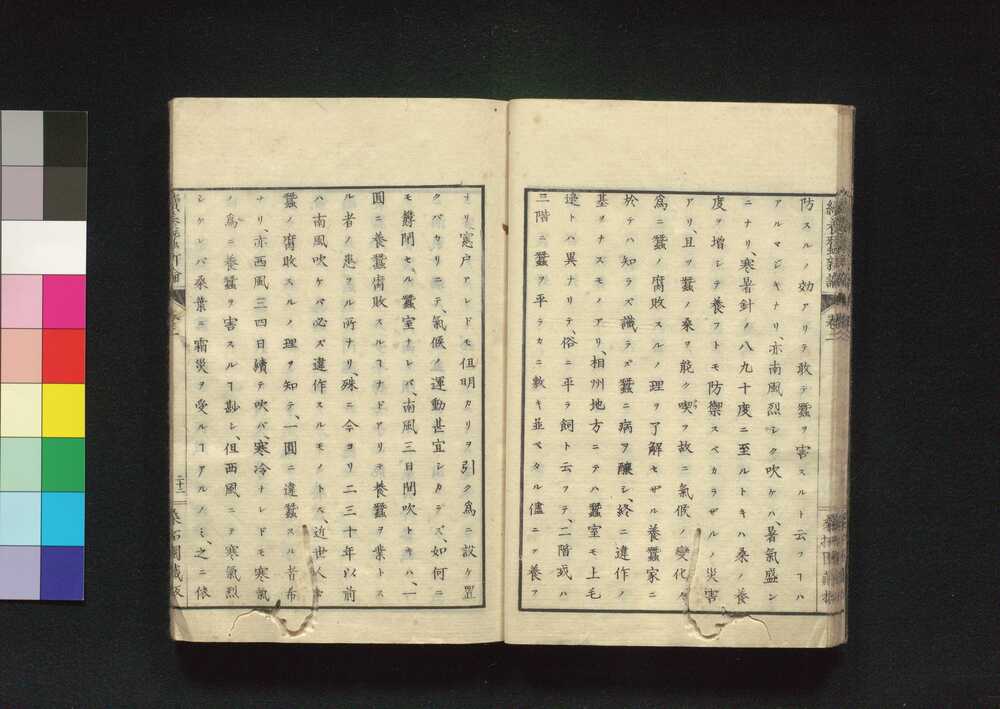 防スルノ効アリテ敢テ蠶ヲ害スルト云フヿハ
アルマジキナリ、亦南風烈シク吹ケハ、暑氣盛ン
ニナリ、寒暑針ノ八九十度ニ至ルトキハ桑ノ養
度ヲ增シテ養フトモ防禦スベカラザルノ災害
アリ、且ツ蠶ノ桑ヲ能ク喫ヲ故ニ氣候ノ變化
爲ニ蠶ノ腐敗スルノ理リ了解セザル養蠶家ニ
於テハ知ラズ識ラズ蠶ニ病ヲ釀シ、終ニ違作ノ
基ヲナスモノアリ、相州地方ニテハ蠶室モ上毛
邊トハ異ナリテ、俗ニ平ラ飼ト云フテ、二階或ハ
三階ニ蠶ヲ平ラカニ敷キ並ベタル儘ニテ養フ
ナリ、窓戸アレドモ但明カリヲ引ク爲ニ設ケ置
クバカリニテ、氣候ノ運動甚宜シカラズ、如何ニ
モ欝閉セル蠶室ナレバ、南風三日間吹トキハ、一
圓ニ養蠶腐敗スルヿナドアリテ養蠶ヲ業トス
ル者ノ患フル所ナリ、殊ニ今ヨリ二三十年以前
ハ南風吹ケバ必ズ違作スルモノトス、近世人々
蠶ノ腐敗スルノ理ヲ知テ、一圓ニ違蠶スル者布
ナリ、亦西風三四日續テ吹バ、寒冷ナレドモ寒氣
ノ爲ニ養蠶ヲ害スルヿ尠シ、但西風ニテ寒氣烈
シケレバ桑葉ニ霜災ヲ受ルヿアルノミ、之ニ依